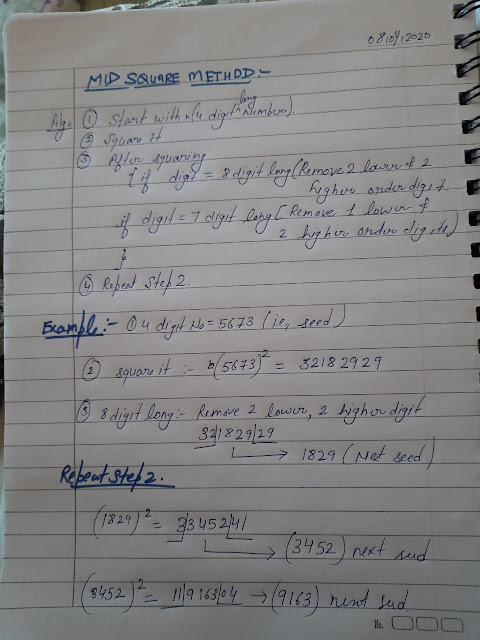 08/04/2020
MID SQUARE METHOD:-
Alg:- ① Start with n(4 digit long number).
② Square it
③ After squaring
{ if digit = 8 digit long (Remove 2 lower & 2
higher order digit
if digit = 7 digit long [Remove 1 lower &
2 higher order digits)
}
④ Repeat Step 2.
Example:- ① 4 digit No = 5673 (ie, seed)
② square it :- (5673)² = 32182929
③ 8 digit long:- Remove 2 lower, 2 higher digit
32|1829|29
→ 1829 (Next seed)
Repeat Step 2.
(1829)² = 3|3452|41
→ (3452) next seed
(3452)² = 11|9163|04 → (9163) next seed.